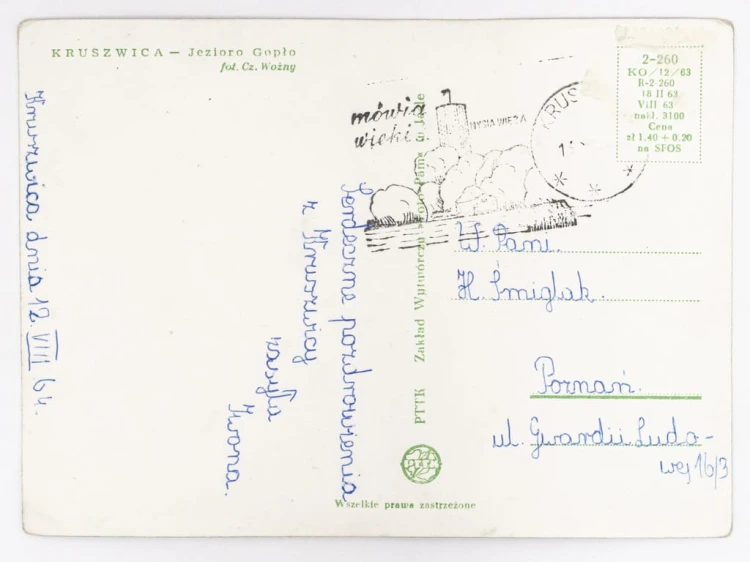 KRUSZWICA — Jezioro Gopło
fot. Cz. Woźny
Kruszwica dnia 12.VIII 64.
Serdeczne pozdrowienia
z Kruszwicy
zasyła
Iwona.
mówią
wieki
MYSIA WIEŻA
KRUS
2-260
KO/12/63
R-2-260
18 II 63
VIII 63
nakł. 3100
Cena
zł 1.40 + 0.20
na SFOS
PTTK Zakład Wytwórczy
W. Pani
H. Śmiglak.
Poznań.
ul. Gwardii Ludo-
wej 16/3
Wszelkie prawa zastrzeżone